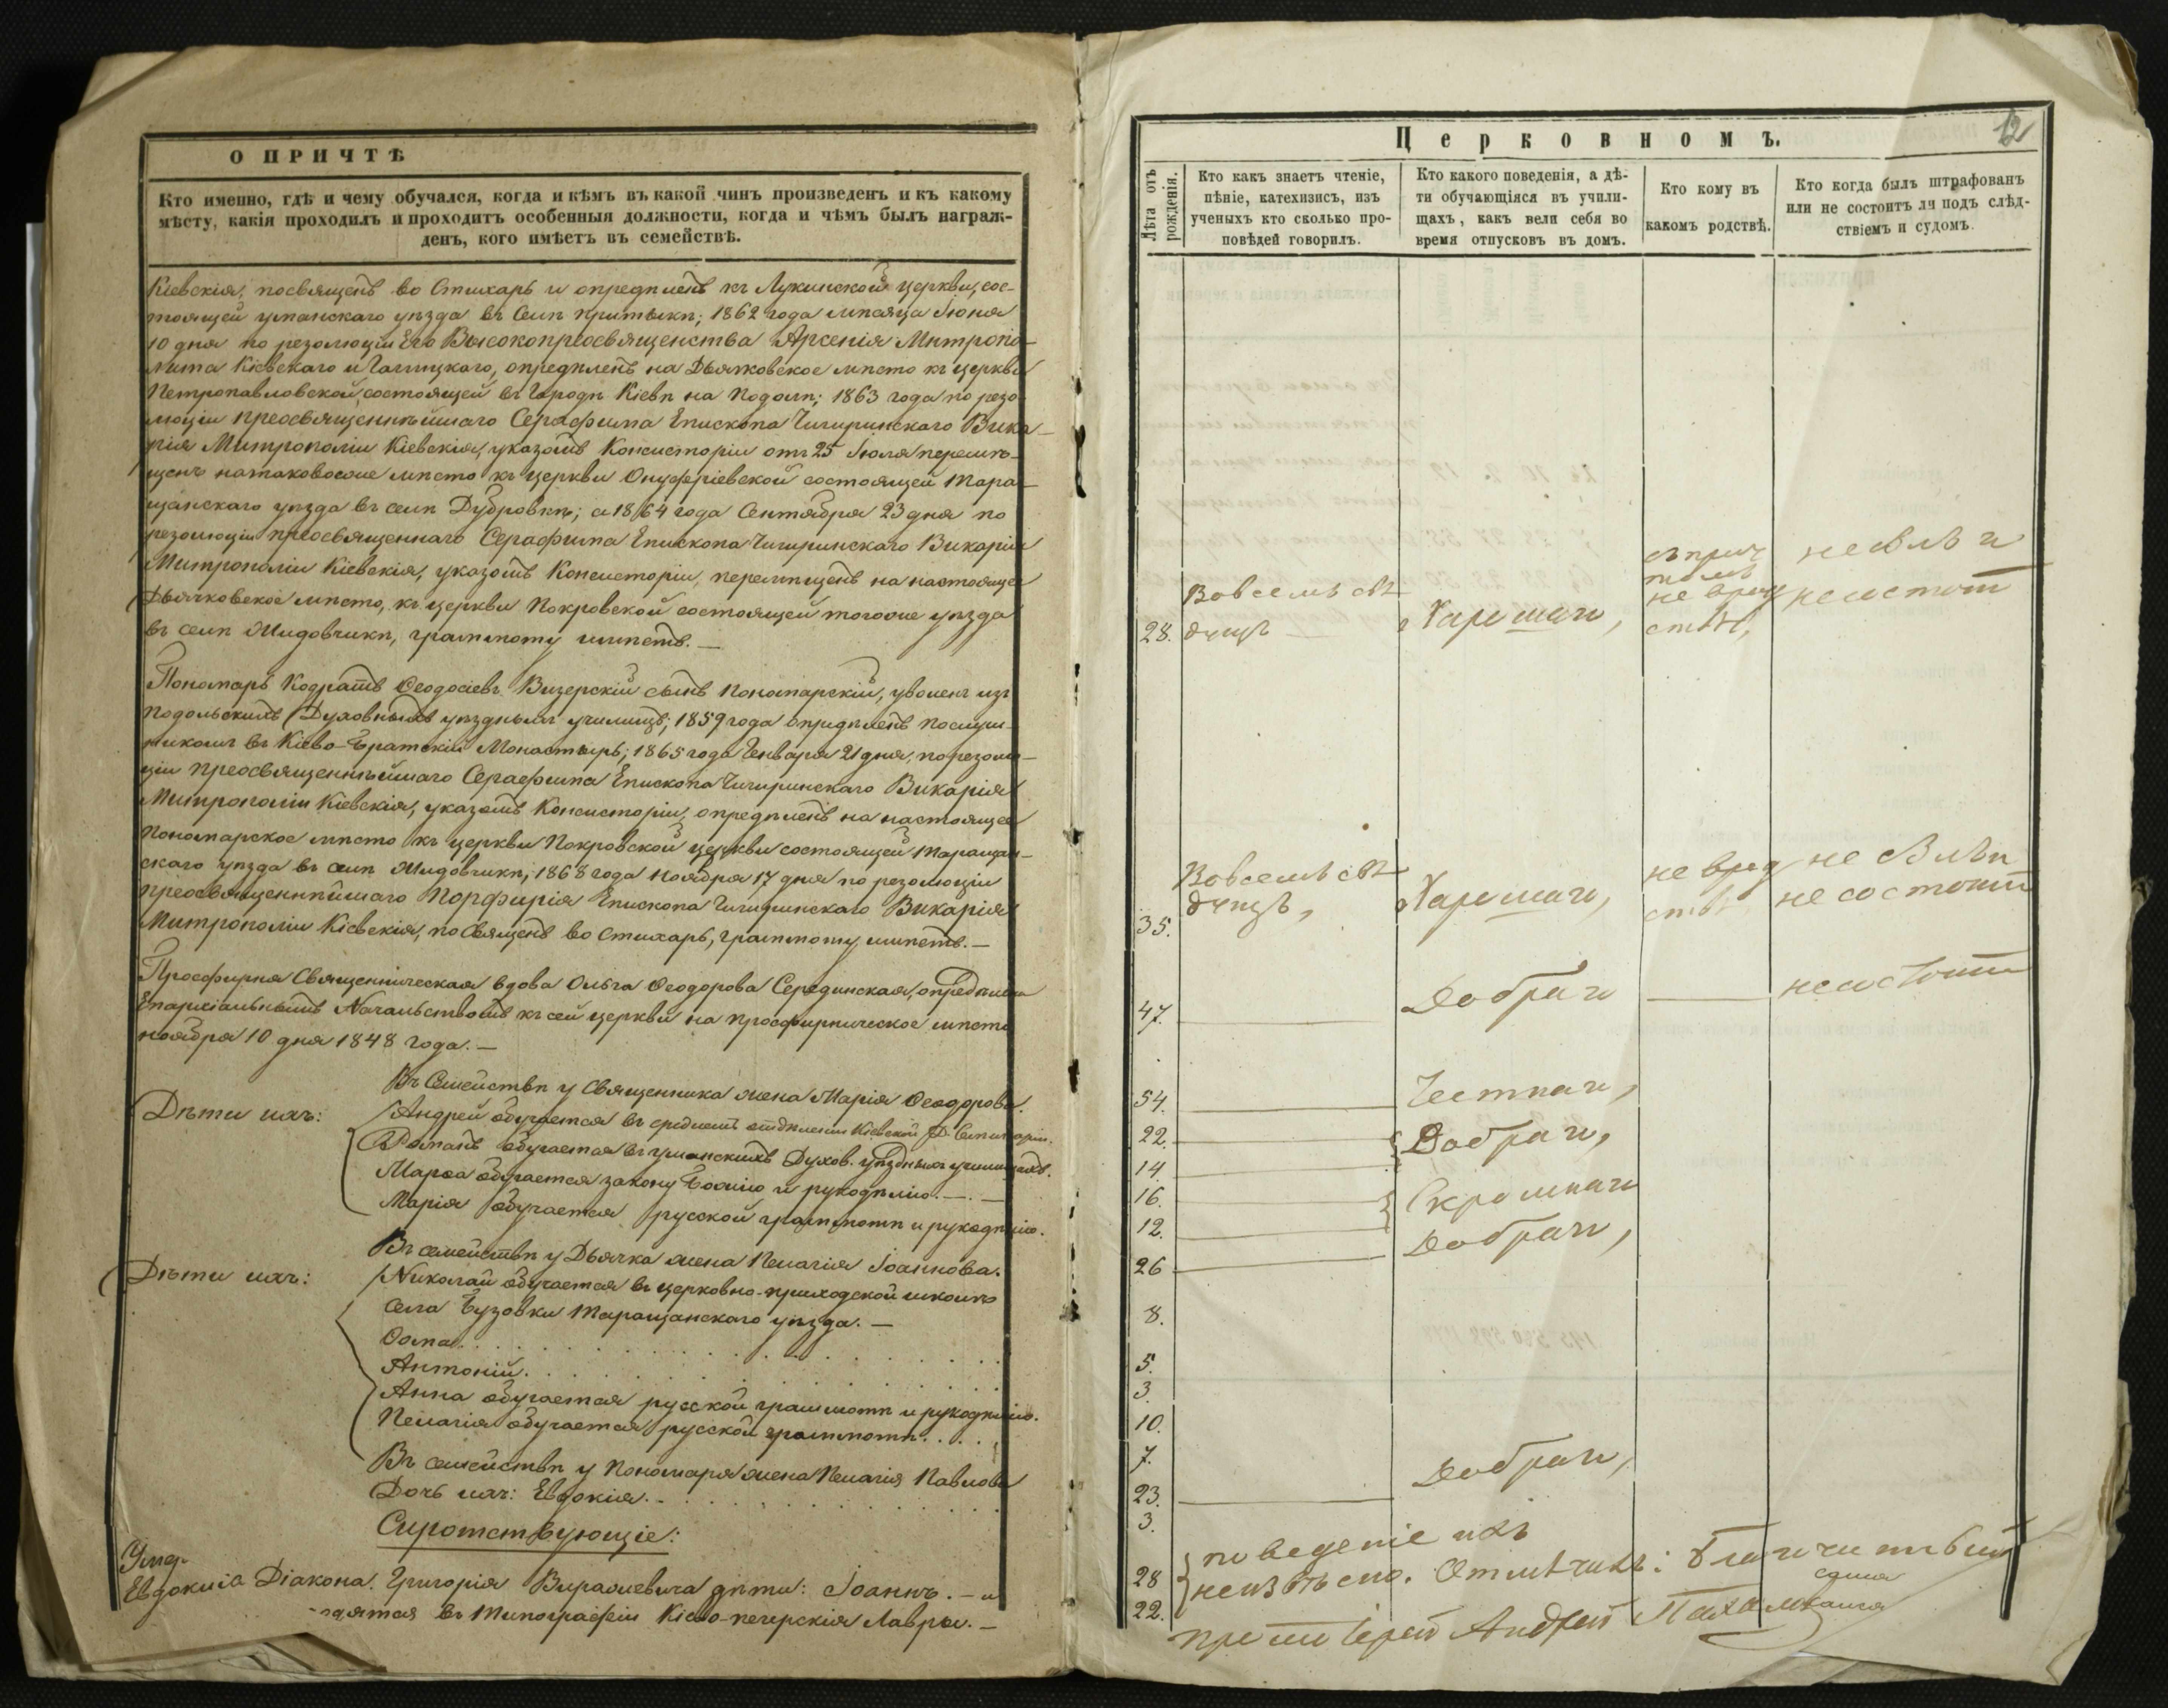 О ПРИЧТѢ
Кто именно, гдѣ и чему обучался, когда и кѣмъ въ какой чинъ произведенъ и къ какому
мѣсту, какія проходилъ и проходитъ особенныя должности, когда и чѣмъ былъ награж-
денъ, кого имѣетъ въ семействѣ.
Кіевскія, посвященъ во Стихарь и опредѣленъ къ Лукинской церкви, сос-
тоящей уманскаго уѣзда въ селѣ Притыкѣ; 1862 года мѣсяца Іюня
10 дня по резолюціи Его Высокопреосвященства Арсенія Митропо-
лита Кіевскаго и Галицкаго, опредѣленъ на Дьячковское мѣсто къ церкви
Петропавловской, состоящей въ Городѣ Кіевѣ на Подолѣ; 1863 года по резо-
люціи преосвященнѣйшаго Серафима Епископа Чигиринскаго Вика-
рія Митрополіи Кіевскія, указомъ Консисторіи отъ 25 Іюля перемѣ-
щенъ на таковое же мѣсто къ церкви Онуфріевской состоящей Тара-
щанскаго уѣзда въ селѣ Дубровкѣ; а 1864 года Сентября 23 дня по
резолюціи преосвященнаго Серафима Епископа Чигиринскаго Викарія
Митрополіи Кіевскія, указомъ Консисторіи, перемѣщенъ на настоящее
Дьячковское мѣсто, къ церкви Покровской состоящей того же уѣзда
въ селѣ Жидовчикѣ, граммоту имѣетъ. —
Пономарь Кодратъ Ѳеодосіевъ Визерскій сынъ Пономарскій, уволенъ изъ
Подольскихъ Духовныхъ уѣздныхъ училищъ; 1859 года опредѣленъ послуш-
никомъ въ Кіево-Братскій Монастырь; 1865 года Генваря 21 дня, по резолю-
ціи преосвященнѣйшаго Серафима Епископа Чигиринскаго Викарія
Митрополіи Кіевскія, указомъ Консисторіи, опредѣленъ на настоящее
Пономарское мѣсто къ церкви Покровской церкви состоящей Таращан-
скаго уѣзда въ селѣ Жидовчикѣ; 1868 года Ноября 17 дня по резолюціи
преосвященнѣйшаго Порфирія Епископа Чигиринскаго Викарія
Митрополіи Кіевскія, посвященъ во Стихарь, грамоту имѣетъ. —
Просфирня Священническая вдова Ольга Ѳеодорова Серединская, опредѣлена
Епархіальнымъ Начальствомъ къ сей церкви на просфирническое мѣсто
ноября 10 дня 1848 года. —
Въ Семействѣ у Священника жена Марія Ѳеодорова.
Дѣти ихъ:
Андрей обучается въ среднемъ отдѣленіи Кіевской Д. Семинаріи.
Романъ обучается въ Уманскихъ Духов. уѣздныхъ училищахъ.
Марѳа обучается закону Божію и рукодѣлію. — . —
Марія обучается русской грамотѣ и рукодѣлію.
Въ семействѣ у Дьячка жена Пелагія Іоаннова.
Дѣти ихъ:
Николай обучается въ церковно-приходской школѣ
села Бузовки Таращанскаго уѣзда. —
Ѳома
Антоній.
Анна обучается русской грамотѣ и рукодѣлію.
Пелагія обучается русской грамотѣ.
Въ семействѣ у Пономаря жена Пелагія Павлова
Дочь ихъ: Евдокія.
Сиротствующіе:
Умер.
Діакона Григорія дѣти: Іоаннъ. — и
Евдокиіа
въ Типографіи Кіево-печерскія Лавры. —
Церковномъ.
12
Лѣта отъ рожденія.
Кто какъ знаетъ чтеніе,
пѣніе, катехизисъ, изъ
ученыхъ кто сколько про-
повѣдей говорилъ.
Кто какого поведенія, а дѣ-
ти обучающіяся въ учили-
щахъ, какъ вели себя во
время отпусковъ въ домъ.
Кто кому въ
какомъ родствѣ.
Кто когда былъ штрафованъ
или не состоитъ ли подъ слѣд-
ствіемъ и судомъ.
28.
Во всемъ свѣ-
дущъ
Хорошаго,
съ прич
томъ
не въ род
ствѣ,
не былъ и
не состоит
35.
Во всемъ свѣ-
дущъ,
Хорошаго,
не в род
ствѣ
не былъ и
не состоит
47.
Добраго
не состоит
54.
Честнаго,
22.
Добраго,
14.
16.
Скромнаго
12.
26
Добраго,
8.
5.
3.
10.
7.
23.
Добраго,
3.
28
22.
поведеніе ихъ
неизвѣстно. Отмѣчалъ: Благочинный
протоіерей Андрей